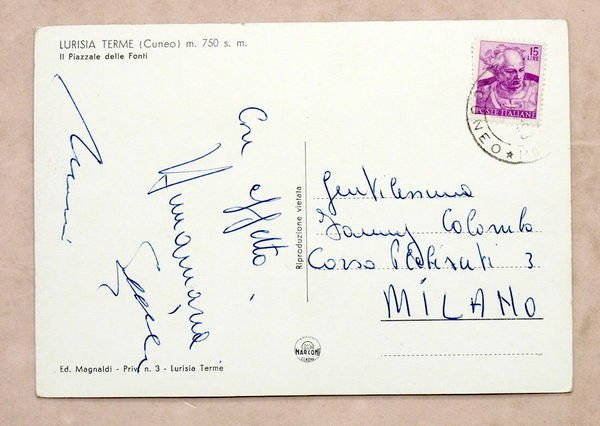 LURISIA TERME (Cuneo) m. 750 s. m.
Il Piazzale delle Fonti
15
LIRE
POSTE ITALIANE
CUNEO
Con affetto
Annamaria
Riproduzione vietata
Gentilissima
Fanny Colombo
Corso Plebisciti 3
MILANO
MARCONI
GENOVA
Ed. Magnaldi - Priv. n. 3 - Lurisia Terme